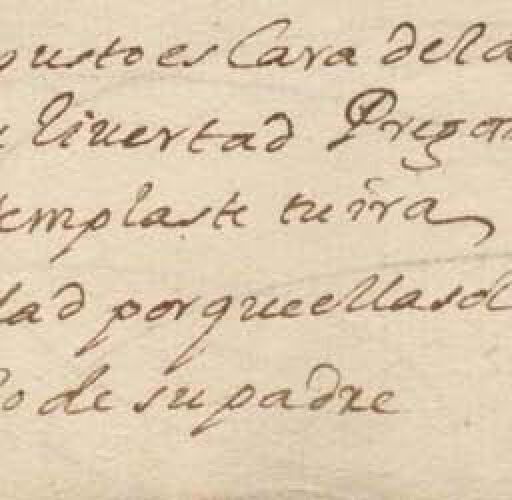 pusto es Cara de la
livertad Pregon
templaste tu ira
dad por que ella sol
lo de su padre